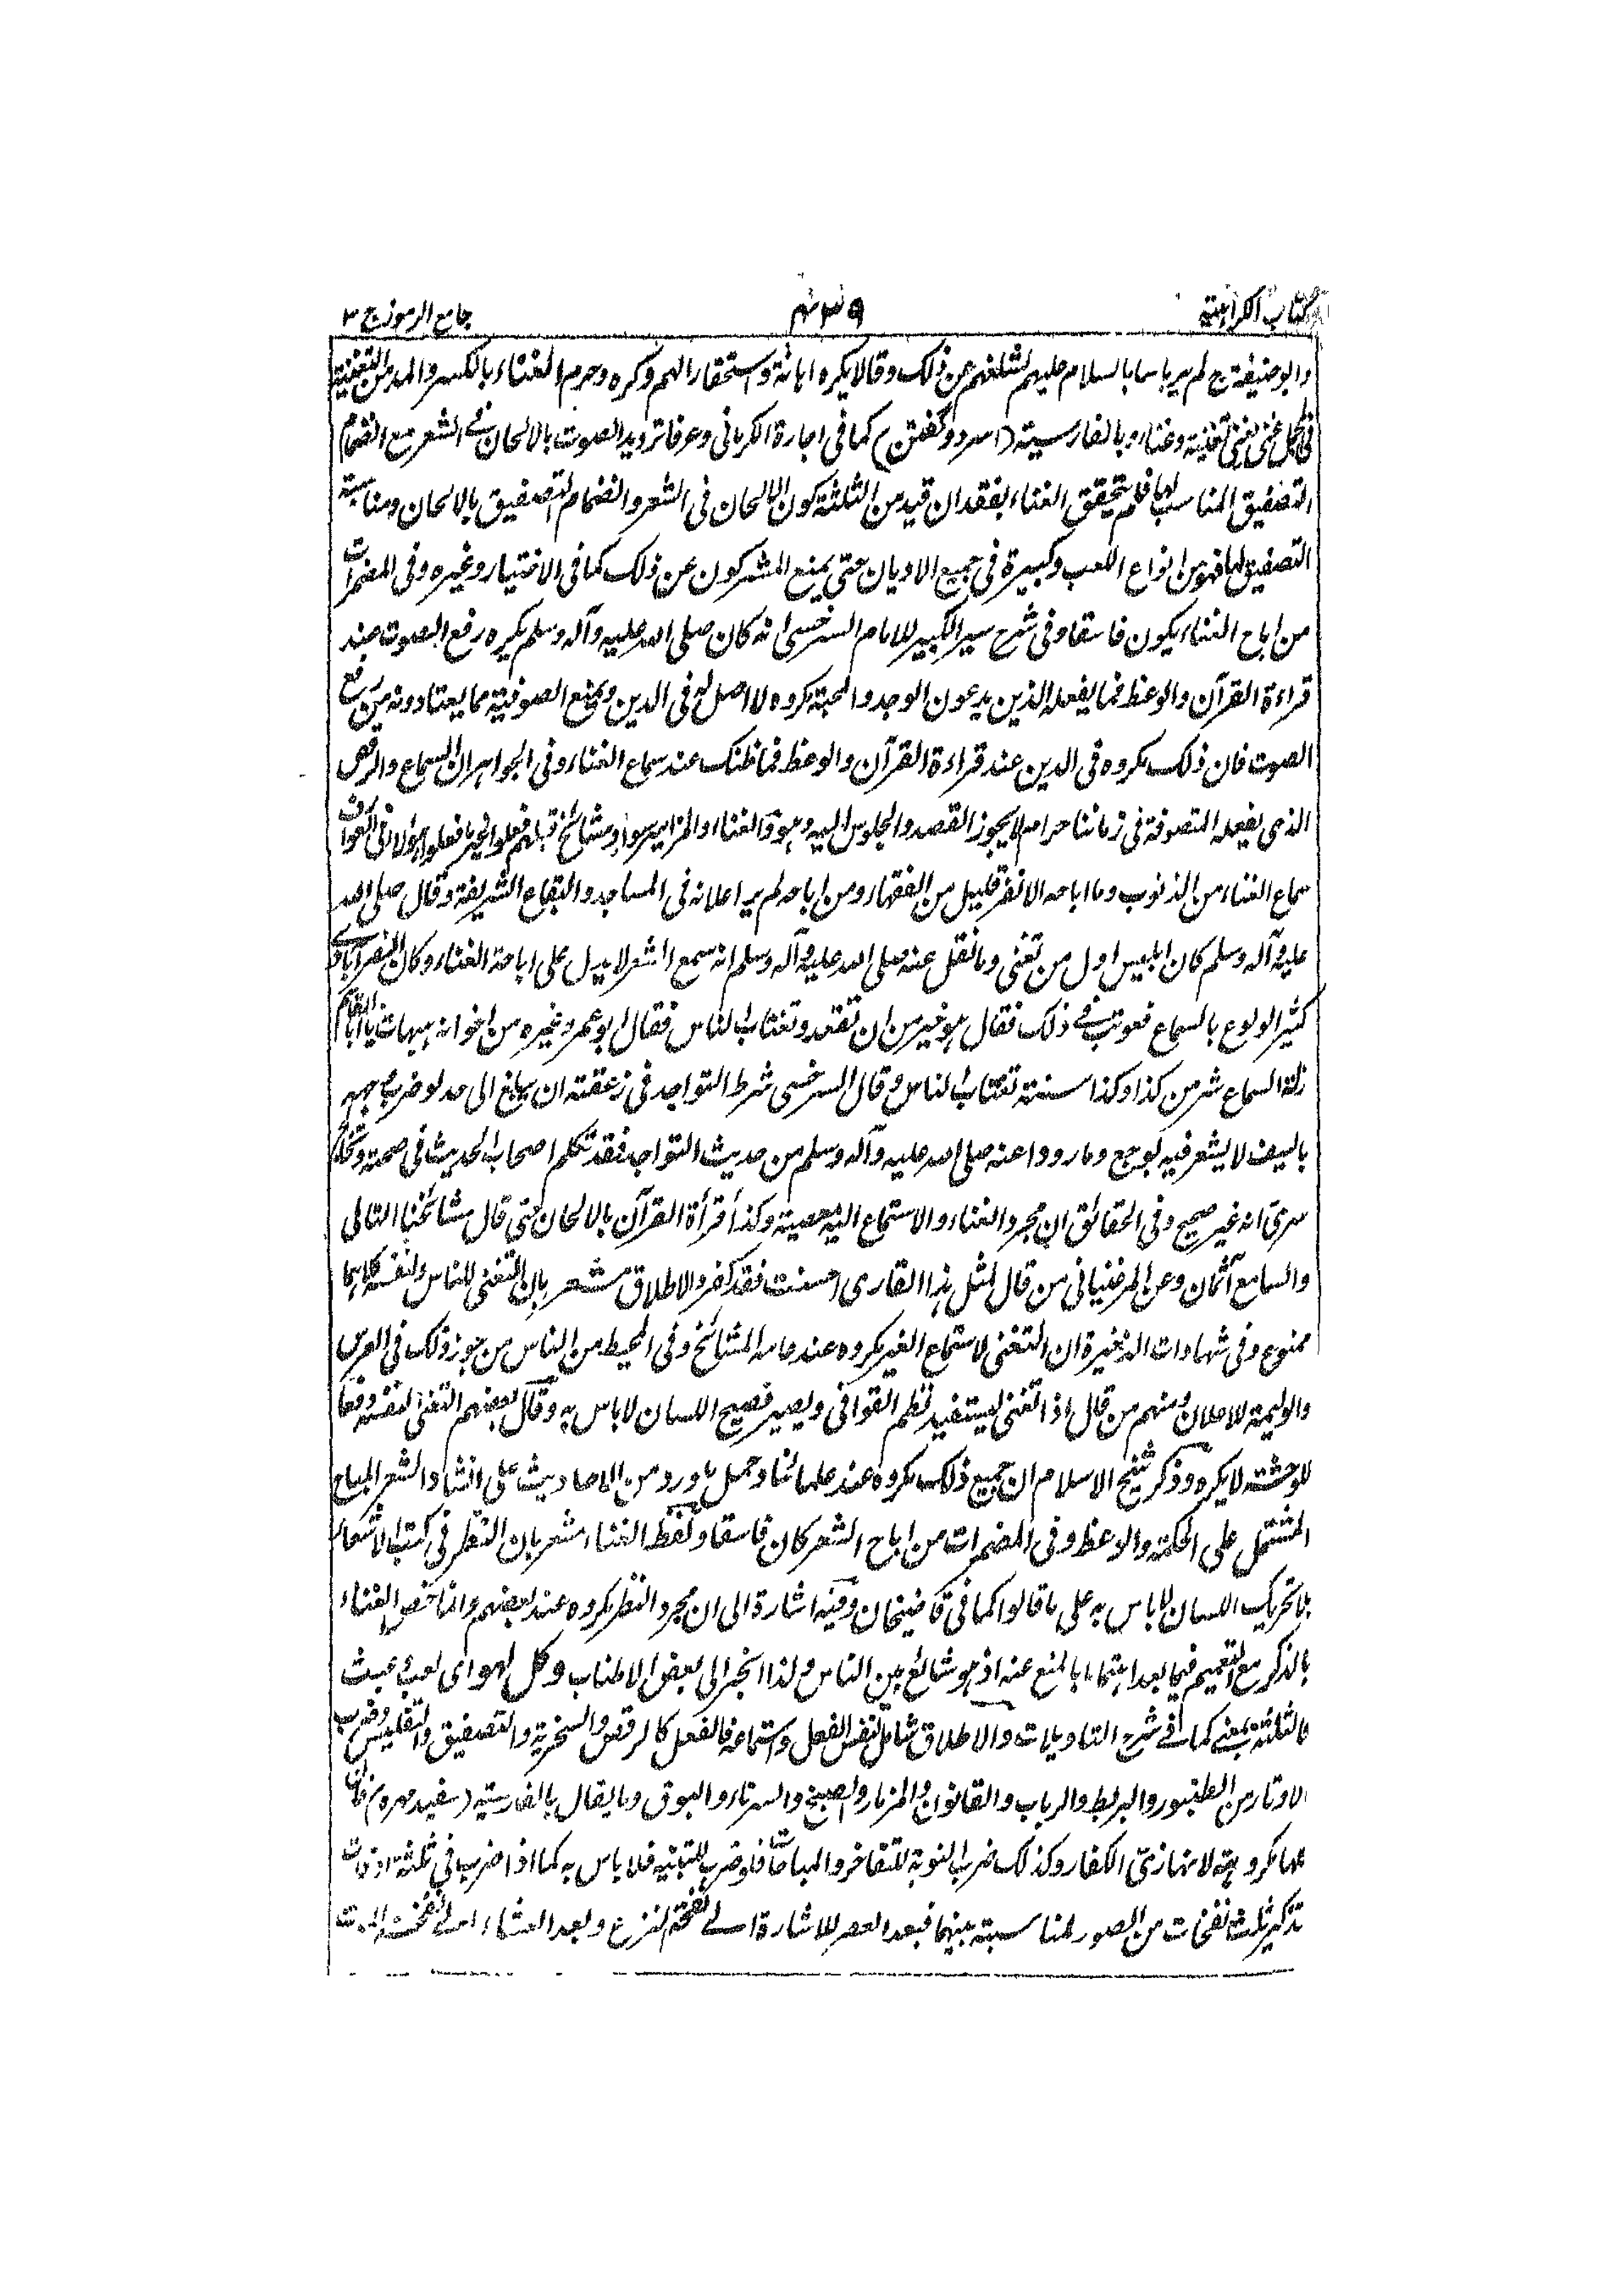 كتاب الكراهية
٤٣٩
جامع الرموز ج ٣
وابو حنيفة رح لم ير باسا بالسلام عليهم لشغلهم عن ذلك وقالا يكره اهانة واستحقارا لهم وكره وحرم الغناء بالكسر والمد من التغنية
غنى يغنى تغنية وغناء وبالفارسية (سرود گفتن) كما في اجارة الكرماني وعرفا ترديد الصوت بالالحان في الشعر مع انضمام
التصفيق المناسب لها فلم يتحقق الغناء بفقدان قيد من الثلثة كون الالحان في الشعر وانضمام التصفيق بالالحان ومناسبة
التصفيق لها فهو من انواع اللعب وكبيرة في جميع الاديان حتى يمنع المشركون عن ذلك كما في الاختيار وغيره وفي المضمرات
من اباح الغناء يكون فاسقا وفي شرح سير الكبير للامام السرخسي انه كان صلى الله عليه وآله وسلم يكره رفع الصوت عند
قراءة القرآن والوعظ فما يفعله الذين يدعون الوجد والمحبة مكروه لا اصل له في الدين ويمنع الصوفية مما يعتادونه من رفع
الصوت فان ذلك مكروه في الدين عند قراءة القرآن والوعظ فما ظنك عند سماع الغناء وفي الجواهر ان السماع والرقص
الذي يفعله المتصوفة في زماننا حرام لا يجوز القصد والجلوس اليه وهو والغناء والمزامير سواء ومشائخ قبلهم فعلوا غير ما فعلوا هؤلاء وفي العوارف
سماع الغناء من الذنوب وما اباحه الا نفر قليل من الفقهاء ومن اباحه لم ير اعلانه في المساجد والبقاع الشريفة وقال صلى الله
عليه وآله وسلم كان ابليس اول من تغنى وما نقل عنه صلى الله عليه وآله وسلم انه سمع الشعر لا يدل على اباحة الغناء وكان النصرآبادي
كثير الولوع بالسماع فعوتب في ذلك فقال هو خير من ان تقعد وتغتاب الناس فقال ابو عمرو وغيره من اخوانه هيهات يا ابا القاسم
زلة السماع شر من كذا وكذا سنة تغتاب الناس وقال السرخسي شرط التواجد في زعقته ان يبلغ الى حد لو ضرب وجهه
بالسيف لا يشعر فيه بوجع وما رووا عنه صلى الله عليه وآله وسلم من حديث التواجد فقد تكلم اصحاب الحديث في صحته
سرى انه غير صحيح وفي الحقائق ان مجرد الغناء والاستماع اليه معصية وكذا قرأة القرآن بالالحان حتى قال مشائخنا التالي
والسامع آثمان وعن المرغيناني من قال لمثل هذا القاري احسنت فقد كفر والاطلاق مشعر بان التغني للناس ولنفسه كلاهما
ممنوع وفي شهادات الذخيرة ان التغني لاستماع الغير مكروه عند عامة المشائخ وفي المحيط من الناس من جوز ذلك في العرس
والوليمة للاعلان ومنهم من قال اذا تغنى ليستفيد نظم القوافي ويصير فصيح اللسان لا باس به وقال بعضهم التغني لنفسه دفعا
للوحشة لا يكره وذكر شيخ الاسلام ان جميع ذلك مكروه عند علمائنا وحمل ما ورد من الاحاديث على انشاد الشعر المباح
المشتمل على الحكمة والوعظ وفي المضمرات من اباح الشعر كان فاسقا ولفظ الغناء مشعر بان النظر في كتب الاشعار
بلا تحريك اللسان لا باس به على ما قالوا كما في قاضيخان وفيه اشارة الى ان مجرد النظر مكروه عند بعضهم وانما خص الغناء
بالذكر مع التعميم فيما بعد اهتماما بالمنع عنه اذ هو شائع بين الناس ولذا انجر الى بعض الاطناب وكل لهو اي لعب وعبث
فالثلثة بمعنى كما في شرح التاويلات والاطلاق شامل لنفس الفعل واستماعه فالفعل كالرقص والسخرية والتصفيق والتقليس وضرب
الاوتار من الطنبور والبربط والرباب والقانون والمزمار والصنج والسرناء والبوق وما يقال بالفارسية (سفيد مهره) فان
لها مكروهة لانها زي الكفار وكذلك ضرب النوبة للتفاخر والمباهات فلو ضرب للتنبيه فلا باس به كما اذا ضرب في ثلثة اوقات
تذكير ثلث نفخات من الصور لمناسبة بينهما فبعد العصر للاشارة الى نفخة الفزع وبعد العشاء الى نفخة الموت